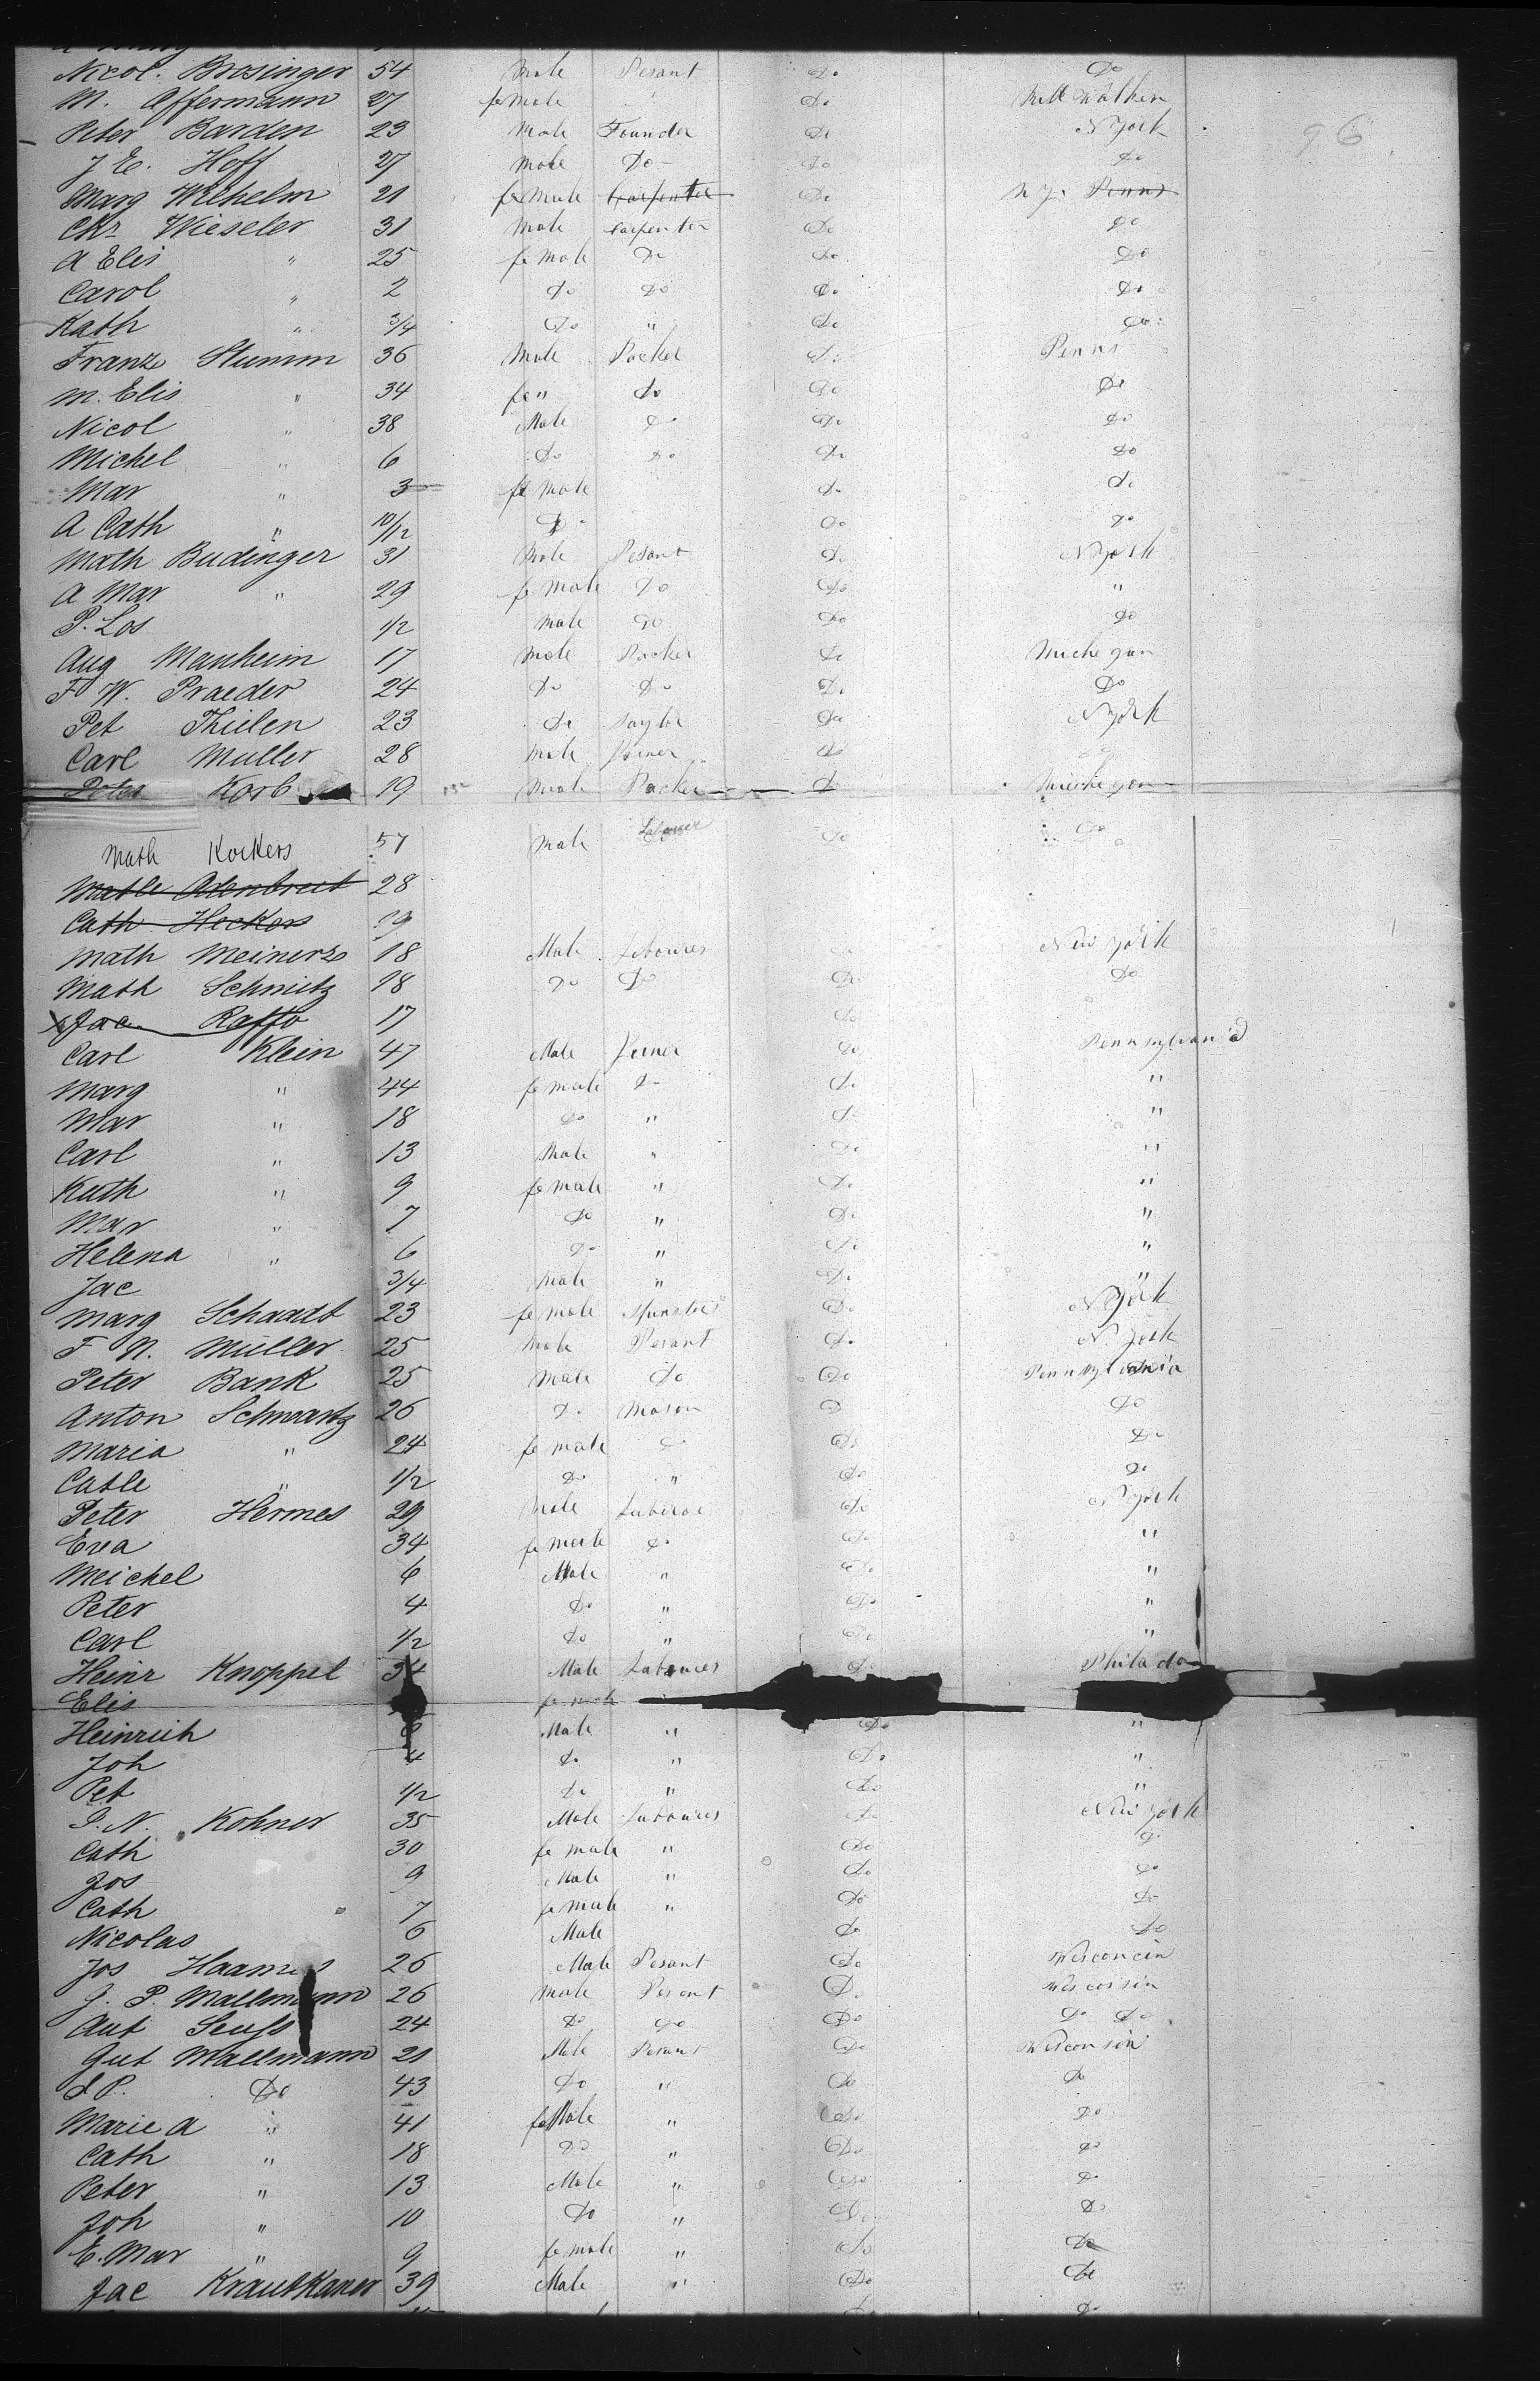 Nicol. Brosinger 54 Male Pesant Do Do
M. Affermann 27 female Do Mill Walken
Peter Barden 23 Male Founder Do N York
96
J E. Hoff 27 Male Do Do Do
Marg Wilhelm 21 female Carpenter Do N Y. Penns
Chr Wieseler 31 Male Carpenter Do Do
A Elis " 25 female Do Do Do
Carol " 2 Do Do Do Do
Kath " 3/4 Do " Do Do
Franz Stumm 36 Male Packer Do Penns
M. Elis " 34 fe " Do Do Do
Nicol " 38 Male Do Do Do
Michel " 6 Do Do Do Do
Mar " 3 female Do Do
A Cath " 10/12 Do Do Do
Math Budinger 31 Male Pesant Do N York
A Mar " 29 female Do Do "
P. Los 1/2 Male Do Do Do
Aug Manheim 17 Male Packer Do Michegan
F W. Praeder 24 Do Do Do Do
Pet Thielen 23 Do Taylor Do N York
Carl Muller 28 Male Joiner Do
Peter Korb 19 Male Packer Do Michegan
Math Kockers 57 Male Labourer Do Do
Math Odenbreit 28
Cath Heckers 19
Math Meinerz 18 Male Labourer Do New York
Math Schmitz 18 Do Do Do Do
X Jac Raffo 17 Do
Carl Klein 47 Male Joiner Do Pennsylvania
Marg " 44 female Do Do "
Mar " 18 Do " Do "
Carl " 13 Male " Do "
Kath " 9 female " Do "
Mar " 7 Do " Do "
Helena " 6 Do " Do "
Jac 3/4 Male " Do "
Marg Schaadt 23 female Spinster Do N York
F N. Müller 25 Male Pesant Do N. York
Peter Bank 25 Male Do Do Pennsylvania
Anton Schwartz 26 Do Mason Do Do
Maria " 24 female Do Do Do
Cathe " 1/2 Do " Do Do
Peter Hermes 29 Male Do N York
Eva 34 female Do Do "
Meichel 6 Male " Do "
Peter 4 Do " Do "
Carl 1/2 Do " Do "
Heinr Knoppel 34 Male Labourer Do Philad
Elis female
Heinrich 6 Male " Do "
Joh 4 Do " Do "
Pet 1/2 Do " Do "
P. N. Kohner 35 Male Labourer Do New York
Cath 30 female " Do Do
Jos 9 Male " Do Do
Cath 7 female " Do Do
Nicolas 6 Male Do Do
Jos 26 Male Pesant Do Wisconcin
J. P. Mallmann 26 Male Pesant Do Wisconsin
Ant Seuss 24 Do Do Do Do Do
Gut Mallmann 21 Male Pesant Do Wisconsin
P. Do 43 Do " Do Do
Marie A " 41 female " Do Do
Cath " 18 Do " Do Do
Peter " 13 Male " Do Do
Joh " 10 Do " Do Do
E. Mar " 9 female " Do Do
Jac Krautkamer 39 Male " Do Do